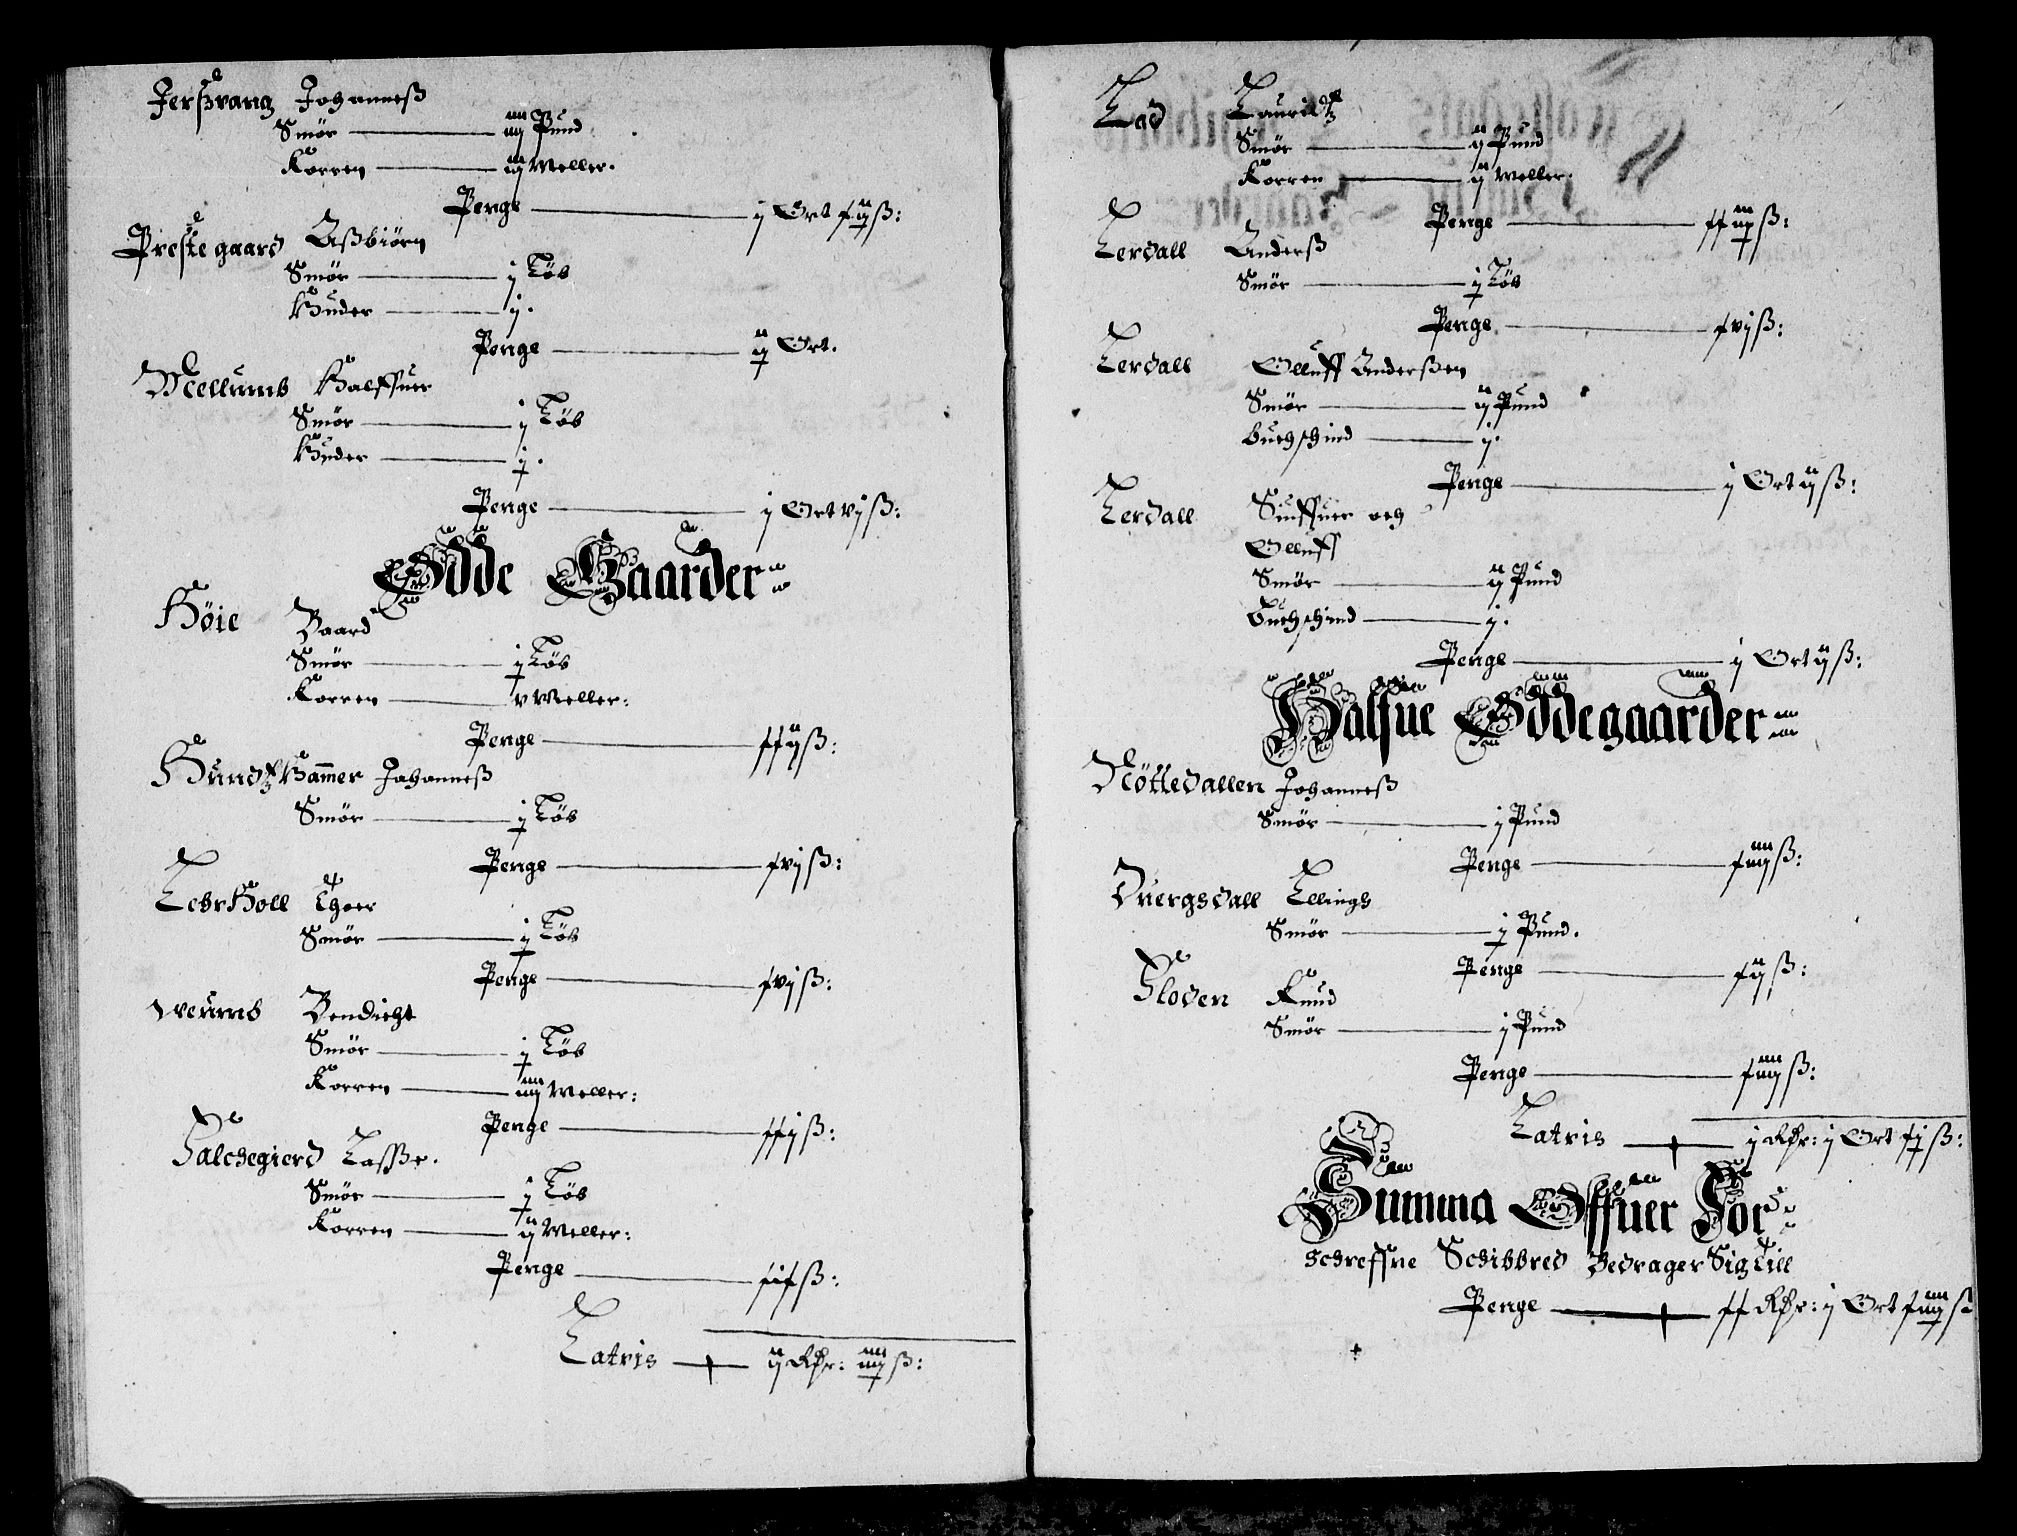 Jerßvang Johanneß
Smör — iiij Pund
Korren — iij Meller.
Penge — j Ort xiijß:
Prestegaard Aßbiörn
Smör — j Löb
Huder — j.
Penge — ij Ort.
Mellumb Halffuer
Smör — j Löb
Huder — j.
Penge — j Ort vjß:
Ödde Gaarder
Höie Baard
Smör — j Löb
Korren — v Meller:
Penge — xxijß:
Hundtzhammer Johanneß
Smör — j Löb
Penge — xvjß:
Lehrholl Thoer
Smör — j Löb
Penge — xvjß:
Weumb Bendicht
Smör — j Löb
Korren — iiij Meller:
Penge — xxjß:
Halchegierd Lasße.
Smör — j Löb
Korren — ij Meller:
Penge — xixß:
Latris — ij Rdr: iiijß:
Lad Lauridtz
Smör — ij Pund
Korren — ij Meller.
Penge — xxiijß:
Lerdall Anderß
Smör — j Löb
Penge — xvjß:
Lerdall Olluff Anderßen
Smör — ij Pund
buchschind — j.
Penge — j Ort ijß:
Lerdall Siuffuer och
Olluff
Smör — ij Pund
buchschind — j.
Penge — j Ort ijß:
Halfue Öddegaarder
Nöttedallen Johanneß
Smör — j Pund
Penge — xiiijß:
Duergsdall Ellings
Smör — j Pund.
Penge — xijß:
Floden Knud
Smör — j Pund
Penge — xiiijß:
Latris — j Rdr: j Ort xjß:
Summa Offuer For
schreffne Schibbred Bedrager Sig Till
Penge — xx Rdr: j Ort xiiijß